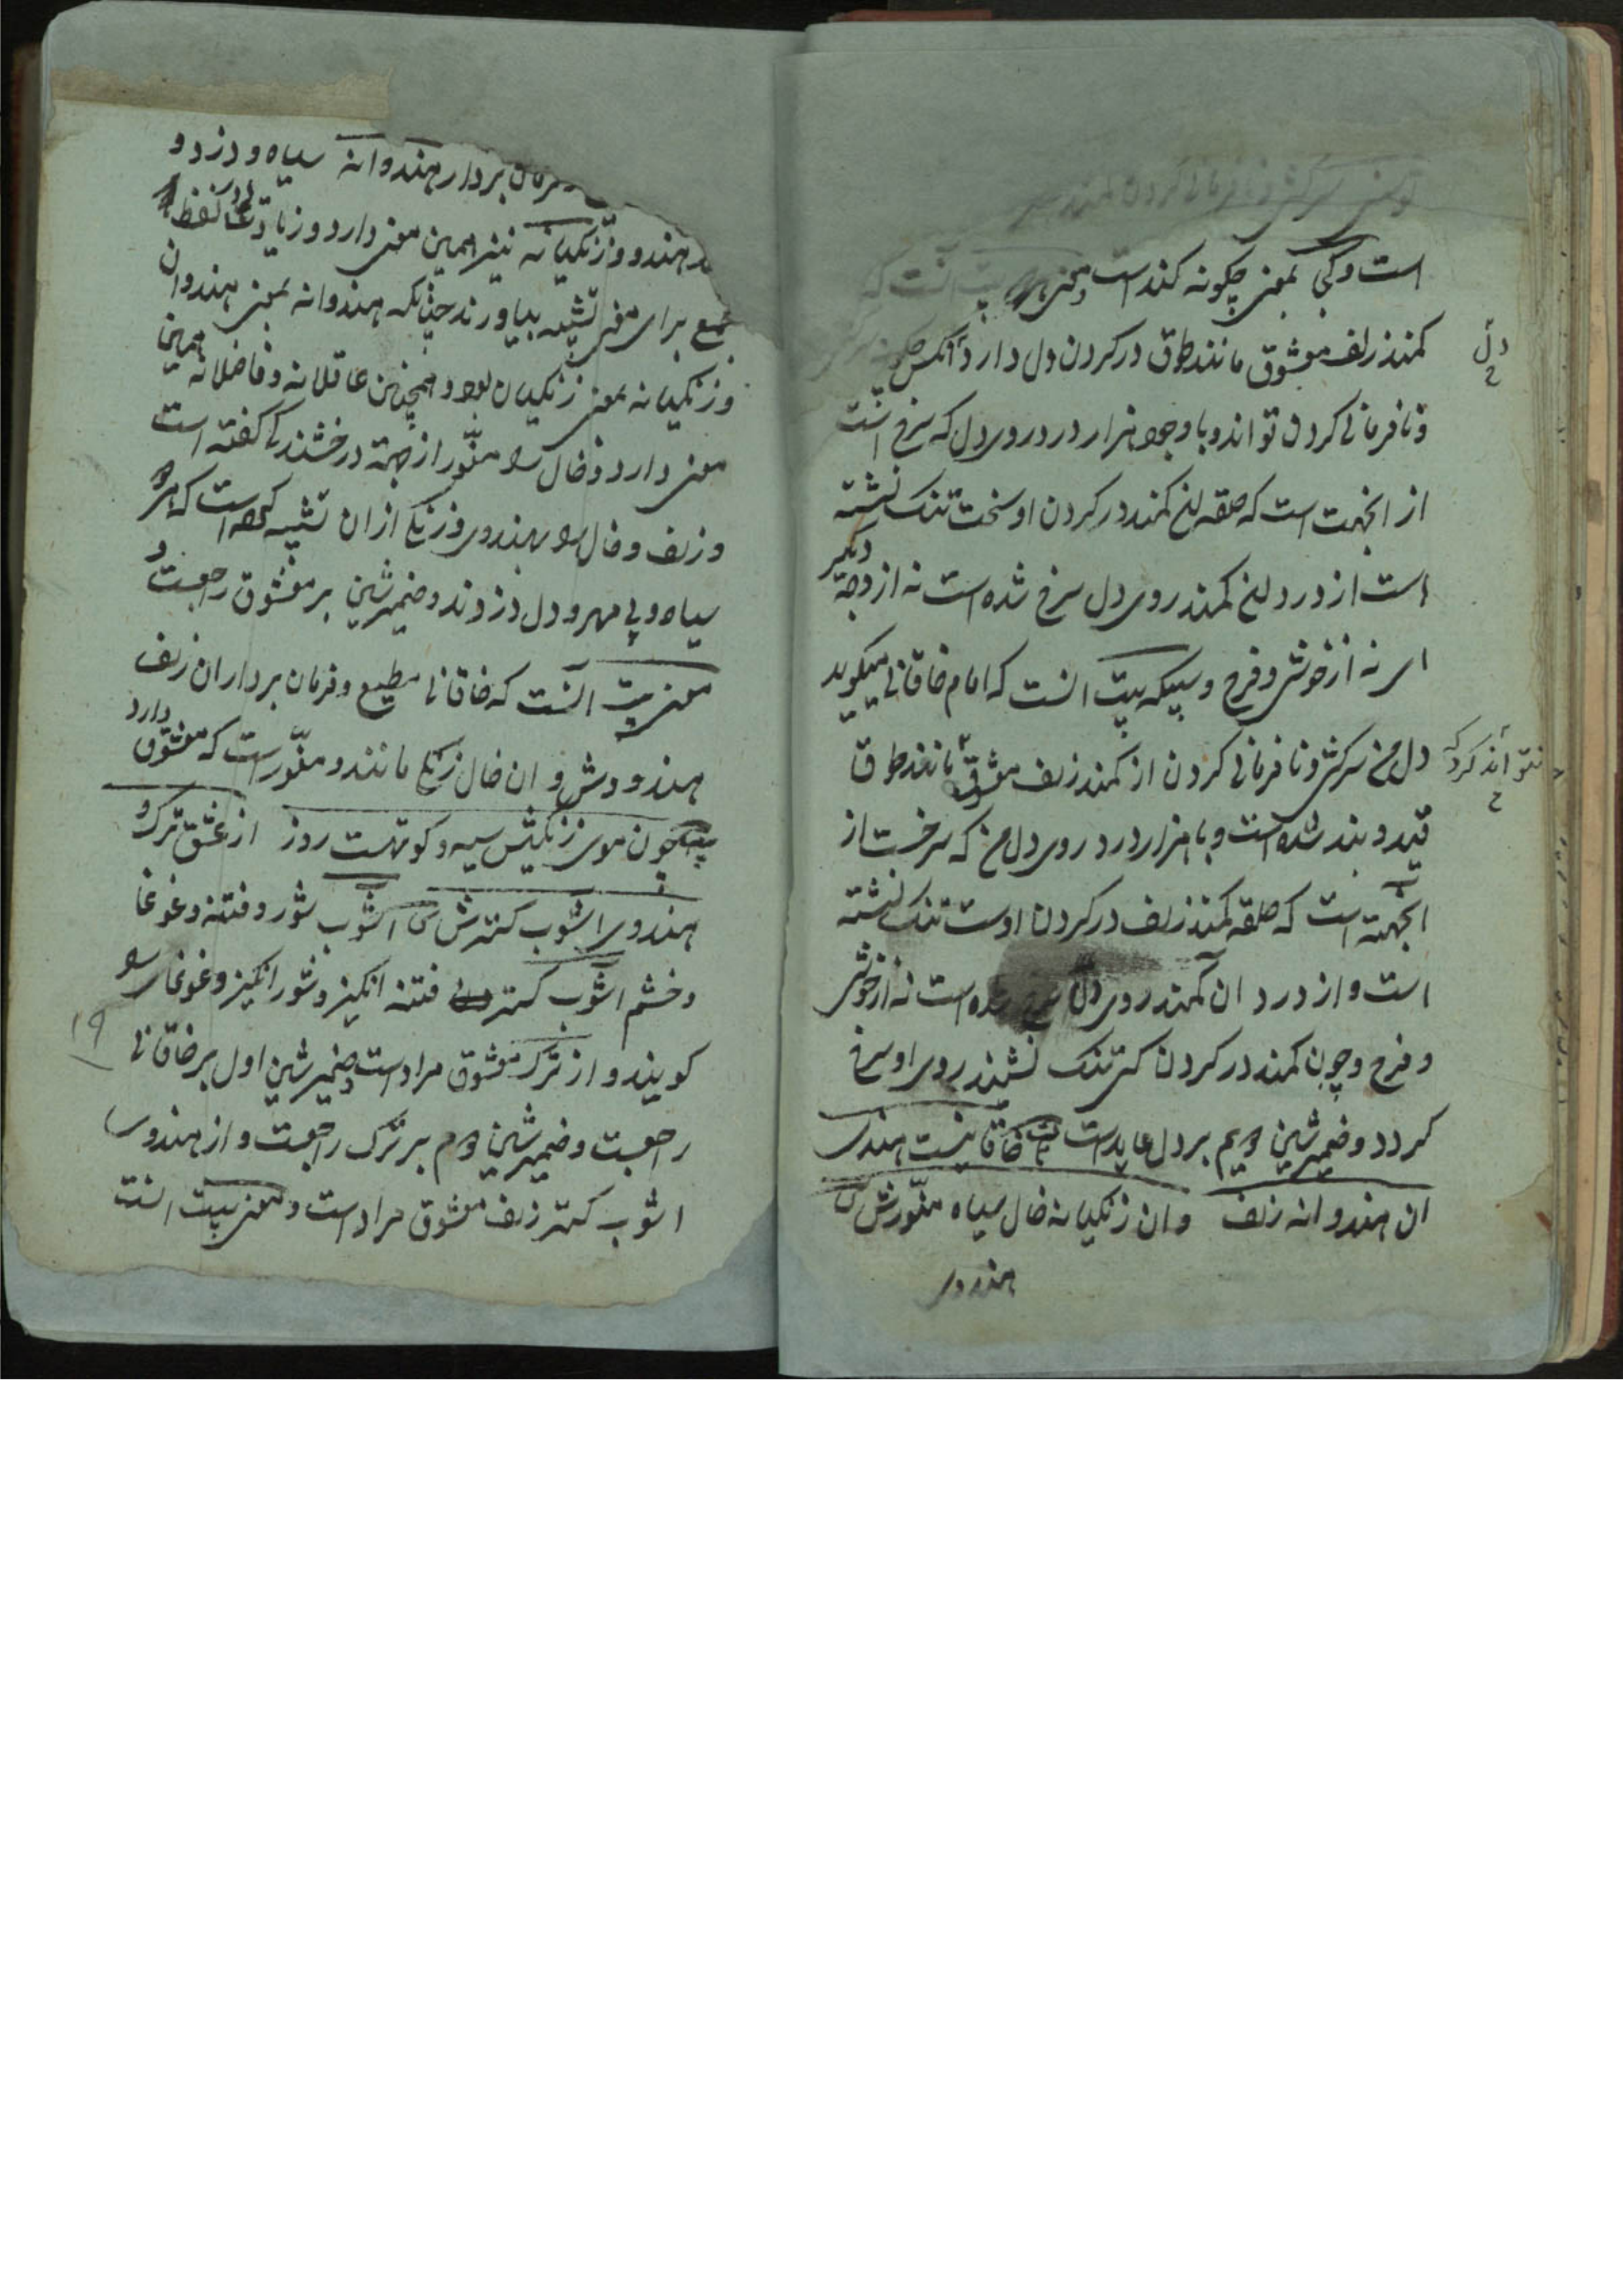 است و کی بمعنی چکونه کند است
کمند زلف معشوق مانند طوق در کردن دل دارد آنکس چکونه
دل
و نافرمانی کردن تواند و باوجود هزار درد روی دل که سرخ است
از انجهت است که حلقه لخ کمند در کردن او سخت تنک نشسته
است از درد لخ کمند روی دل سرخ شده است نه از وجه دیکر
ای نه از خوشی و فرح و سیکه بیت انست که امام خاقانی میکوید
دل من سرکشی و نافرمانی کردن از کمند زلف معشوق مانند طوق
نتواند کرد که
قید و بند شده است و با هزار درد روی دل من که سرخست از
انجهته است که حلقه کمند زلف در کردن اوست تنک نشسته
است و از درد ان کمند روی دل سرخ شده است نه از خوشی
و فرح و چون کمند در کردن کسی تنک نشیند روی او سرخ
کردد و ضمیر شین و میم بر دل عایدست خاقانیست هندوی
ان هندوانه زلف وان زنکیانه خال سیاه منورش
هندوی
فرمان بردار هندوانه سیاه و دزد و
هندو و زنکیانه نیز همین معنی دارد و زیادتی لفظ
جمع برای معنی تشبیه بیاورند چنانکه هندوانه بمعنی هندوان
و زنکیانه بمعنی زنکیان بود و همچنین عاقلانه و فاضلانه همین
معنی دارد و خال را منور از جهته درخشندکی کفته است
و زلف و خال را بهندوی و زنکی از ان تشبیه کرده است که هر دو
سیاه و بی مهر و دل دزدند و ضمیر شین بر معشوق راجعست
معنی بیت انست که خاقانی مطیع و فرمان بردار ان زلف
هندو وش و ان خال زنکی مانند و منور است که معشوق دارد
بیت چون موی زنکیش سیه و کوتهست روز از عشق ترک
هندوی اشوب کسترش اشوب شور و فتنه و غوغا
و خشم اشوب کستر فتنه انکیز و شور انکیز و غوغا را
کویند و از ترک معشوق مرادست و ضمیر شین اول بر خاقانی
۱۹
راجعست و ضمیر شین دوم بر ترک راجعست و از هندوی
اشوب کستر زلف معشوق مراد است و معنی بیت انست